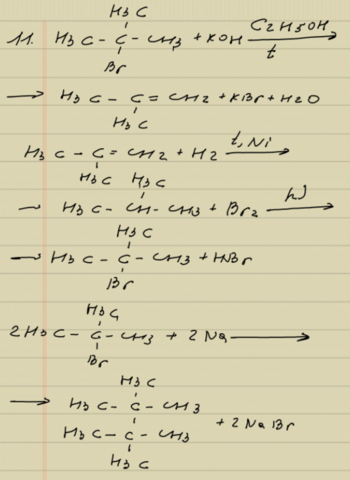 H₃C
11. H₃C – C – CH₃ + KOH C₂H₅OH t →
Br
→ H₃C – C = CH₂ + KBr + H₂O
H₃C
H₃C – C = CH₂ + H₂ t, Ni →
H₃C H₃C
→ H₃C – CH – CH₃ + Br₂ hν →
H₃C
→ H₃C – C – CH₃ + HBr
Br
H₃C
2 H₃C – C – CH₃ + 2 Na →
Br
H₃C
→ H₃C – C – CH₃
H₃C – C – CH₃ + 2 NaBr
H₃C